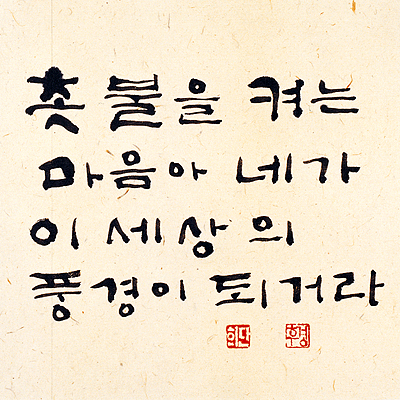 촛불을 켜는
마음아 네가
이 세상의
풍경이 되거라